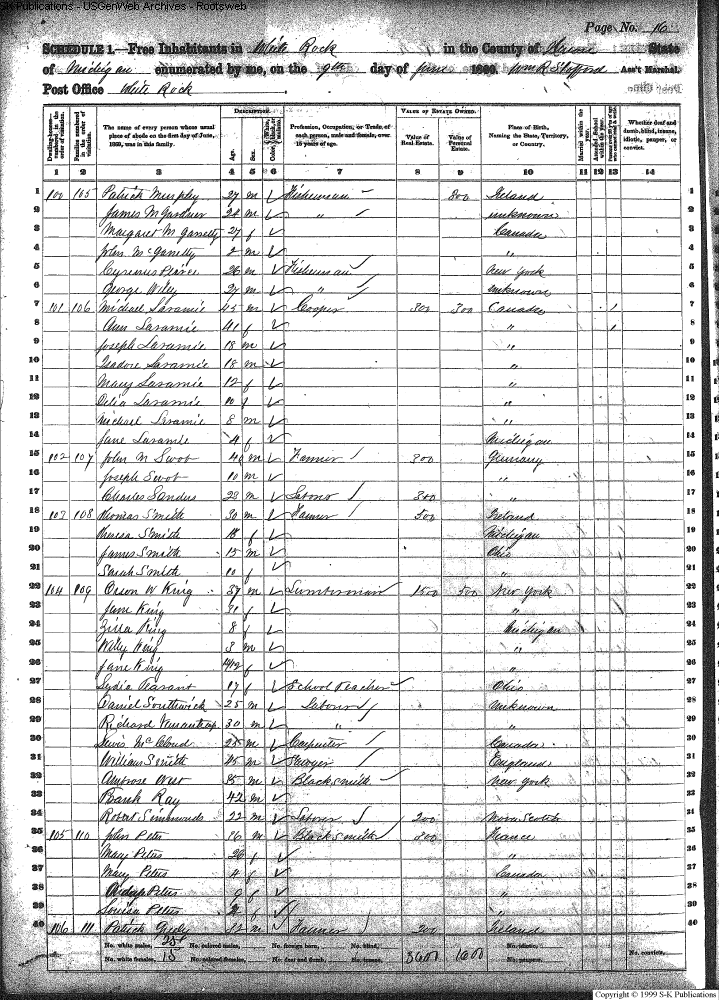 S-K Publications - USGenWeb Archives - Rootsweb
Page No. 16
SCHEDULE 1.—Free Inhabitants in White Rock in the County of Huron State
of Michigan enumerated by me, on the 9th day of June 1860. Wm R Stafford Ass't Marshal.
Post Office White Rock
Dwelling-houses numbered in the order of visitation. Families numbered in the order of visitation. The name of every person whose usual place of abode on the first day of June, 1860, was in this family. DESCRIPTION. Age. Sex. Color Profession, Occupation, or Trade, of each person, male and female, over 15 years of age. VALUE OF ESTATE OWNED. Value of Real Estate. Value of Personal Estate. Place of Birth, Naming the State, Territory, or Country. Married within the year. Attended School within the year. Whether deaf and dumb, blind, insane, idiotic, pauper, or convict.
1 2 3 4 5 6 7 8 9 10 11 12 13 14
1 100 105 Patrick Murphy 27 m Fisherman 800 Ireland 1
2 James M Gardner 24 m " unknown 2
3 Margaret McGarretty 27 f Canada 3
4 John McGarretty 2 m " 4
5 Cyrenus Pierce 26 m Fisherman New York 5
6 George Wiley 27 m " unknown 6
7 101 106 Michael Laramie 45 m Cooper 300 300 Canada 1 7
8 Ann Laramie 41 f " 1 8
9 Joseph Laramie 18 m " 9
10 Isadore Laramie 18 m " 10
11 Mary Laramie 12 f " 11
12 Delia Laramie 10 f " 12
13 Michael Laramie 8 m " 13
14 Jane Laramie 4 f Michigan 14
15 102 107 John N Swot 40 m Farmer 300 Germany 15
16 Joseph Swot 10 m " 16
17 Charles Sanders 23 m Laborer 300 " 17
18 103 108 Thomas Smith 30 m Farmer 500 Ireland 18
19 Theresa Smith 18 f Michigan 19
20 James Smith 15 m Ohio 20
21 Sarah Smith 10 f " 21
22 104 109 Orson W King 37 m Lumberman 1500 500 New York 22
23 Jane King 31 f " 23
24 Zilla King 8 f Michigan 24
25 Willy King 3 m " 25
26 Jane King 4/12 f " 26
27 Lydia Pearant 17 f School Teacher Ohio 27
28 Daniel Southwick 25 m Labour unknown 28
29 Richard 30 m " " 29
30 Lewis McCloud 25 m Carpenter Canada 30
31 William Smith 45 m Sawyer England 31
32 Ambrose West 35 m Blacksmith New York 32
33 Bank Ray 42 m 33
34 Robert Simmonds 22 m Laborer 200 Nova Scotia 34
35 105 110 John Peter 36 m Blacksmith 800 France 35
36 Mary Peters 26 f " 36
37 Mary Peters 4 f Canada 37
38 Peters f " 38
39 Louisa Peters 2 f " 39
40 106 111 Patrick m Farmer 200 Ireland 40
No. white males, 25 No. colored males, No. foreign born, No. blind, No. idiotic,
No. white females, 15 No. colored females, No. deaf and dumb, No. insane, 3600 1600 No. paupers, No. convicts,
Copyright © 1999 S-K Publications